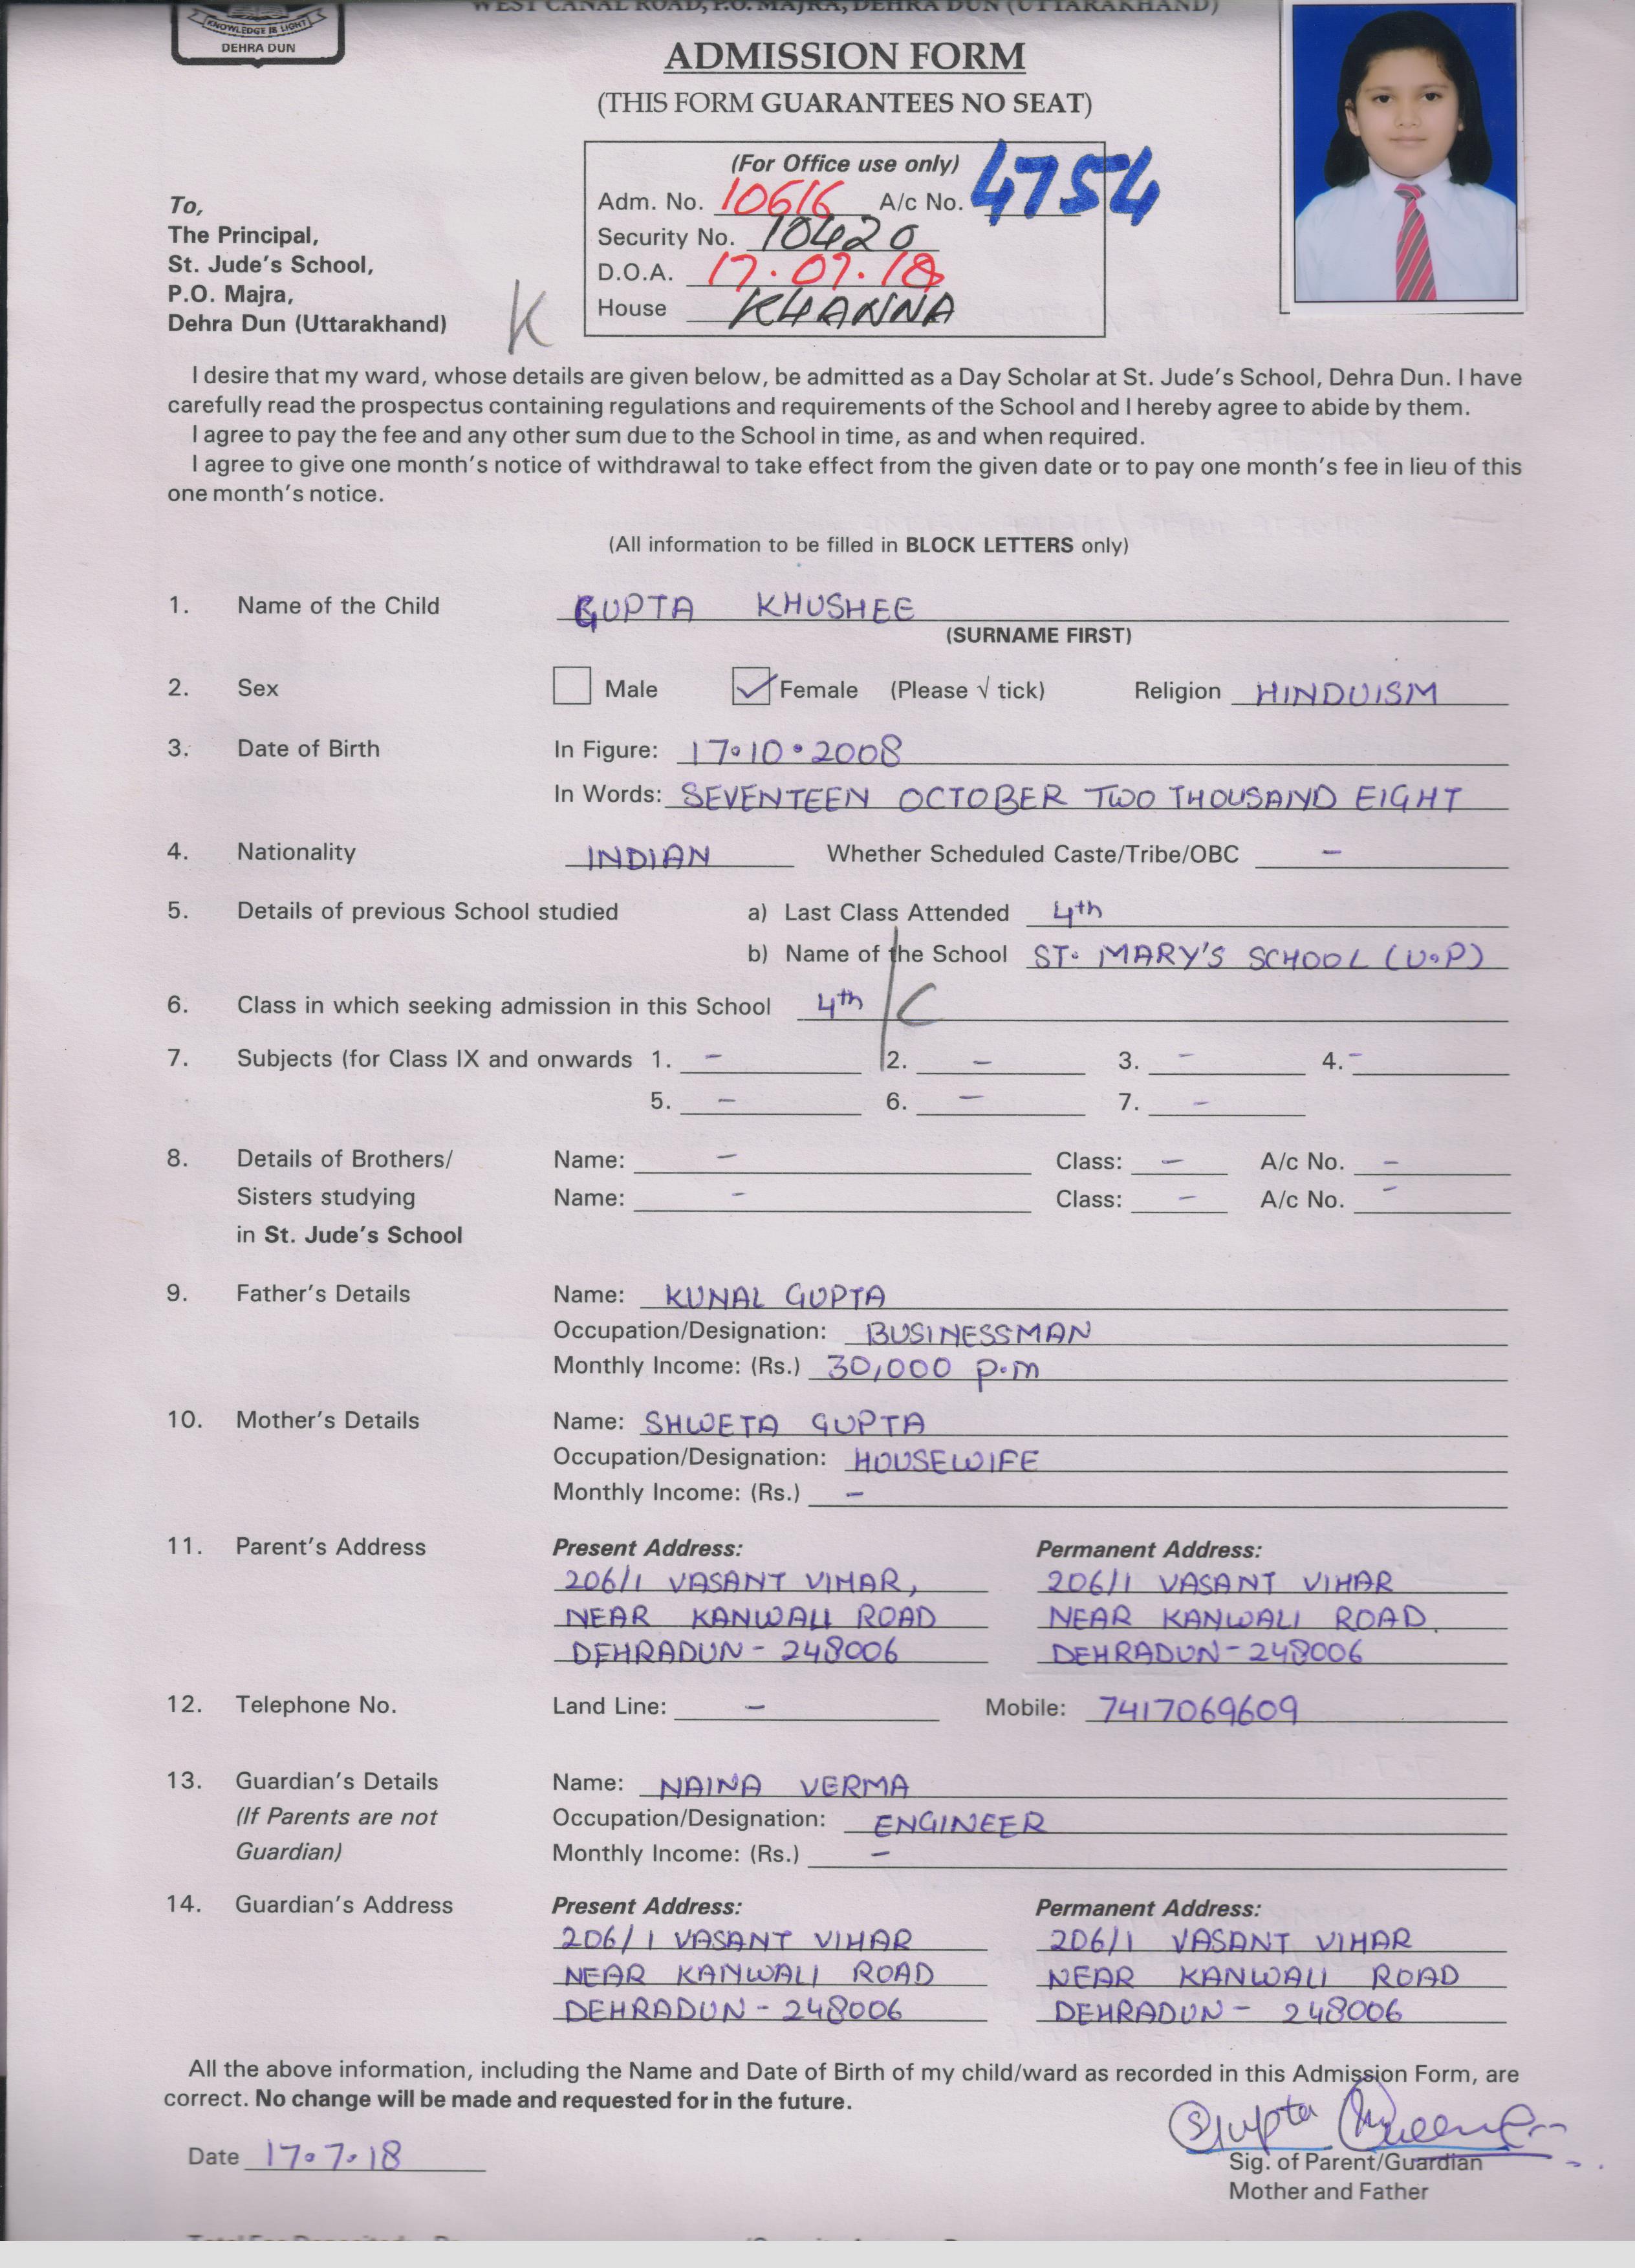 WEST CANAL ROAD, P.O. MAJRA, DEHRA DUN (UTTARAKHAND)
KNOWLEDGE IS LIGHT
DEHRA DUN
ADMISSION FORM
(THIS FORM GUARANTEES NO SEAT)
(For Office use only)
Adm. No. 10616 A/c No. 4754
Security No. 10420
D.O.A. 17.07.18
House KHANNA
To,
The Principal,
St. Jude's School,
P.O. Majra,
Dehra Dun (Uttarakhand)
K
I desire that my ward, whose details are given below, be admitted as a Day Scholar at St. Jude's School, Dehra Dun. I have
carefully read the prospectus containing regulations and requirements of the School and I hereby agree to abide by them.
I agree to pay the fee and any other sum due to the School in time, as and when required.
I agree to give one month's notice of withdrawal to take effect from the given date or to pay one month's fee in lieu of this
one month's notice.
(All information to be filled in BLOCK LETTERS only)
1. Name of the Child GUPTA KHUSHEE
(SURNAME FIRST)
2. Sex Male Female (Please √ tick) Religion HINDUISM
3. Date of Birth In Figure: 17.10.2008
In Words: SEVENTEEN OCTOBER TWO THOUSAND EIGHT
4. Nationality INDIAN Whether Scheduled Caste/Tribe/OBC -
5. Details of previous School studied a) Last Class Attended 4th
b) Name of the School ST. MARY'S SCHOOL (U.P)
6. Class in which seeking admission in this School 4th / C
7. Subjects (for Class IX and onwards 1. - 2. - 3. - 4. -
5. - 6. - 7. -
8. Details of Brothers/ Name: - Class: - A/c No. -
Sisters studying Name: - Class: - A/c No. -
in St. Jude's School
9. Father's Details Name: KUNAL GUPTA
Occupation/Designation: BUSINESSMAN
Monthly Income: (Rs.) 30,000 p.m
10. Mother's Details Name: SHWETA GUPTA
Occupation/Designation: HOUSEWIFE
Monthly Income: (Rs.) -
11. Parent's Address Present Address: Permanent Address:
206/1 VASANT VIHAR, 206/1 VASANT VIHAR
NEAR KANWALI ROAD NEAR KANWALI ROAD.
DEHRADUN - 248006 DEHRADUN - 248006
12. Telephone No. Land Line: - Mobile: 7417069609
13. Guardian's Details Name: NAINA VERMA
(If Parents are not Occupation/Designation: ENGINEER
Guardian) Monthly Income: (Rs.) -
14. Guardian's Address Present Address: Permanent Address:
206/1 VASANT VIHAR 206/1 VASANT VIHAR
NEAR KANWALI ROAD NEAR KANWALI ROAD
DEHRADUN - 248006 DEHRADUN - 248006
All the above information, including the Name and Date of Birth of my child/ward as recorded in this Admission Form, are
correct. No change will be made and requested for in the future.
SGupta
Date 17.7.18
Sig. of Parent/Guardian
Mother and Father